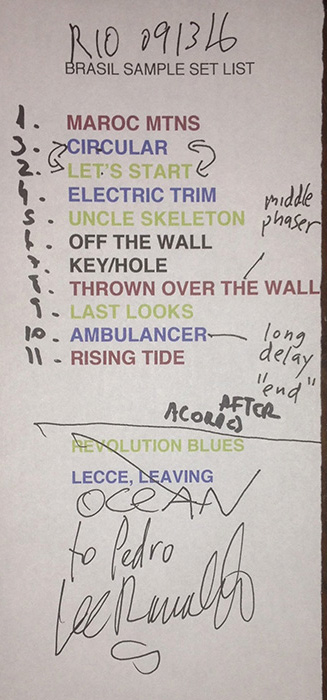 RIO 091316
BRASIL SAMPLE SET LIST
1. MAROC MTNS
3. CIRCULAR
2. LET'S START
4. ELECTRIC TRIM
5. UNCLE SKELETON
middle
phaser
6. OFF THE WALL
7. KEY/HOLE
8. THROWN OVER THE WALL
9. LAST LOOKS
10. AMBULANCER
long
delay
"end"
11 - RISING TIDE
AFTER
REVOLUTION BLUES
LECCE, LEAVING
OCEAN
to Pedro
Lee Ranaldo